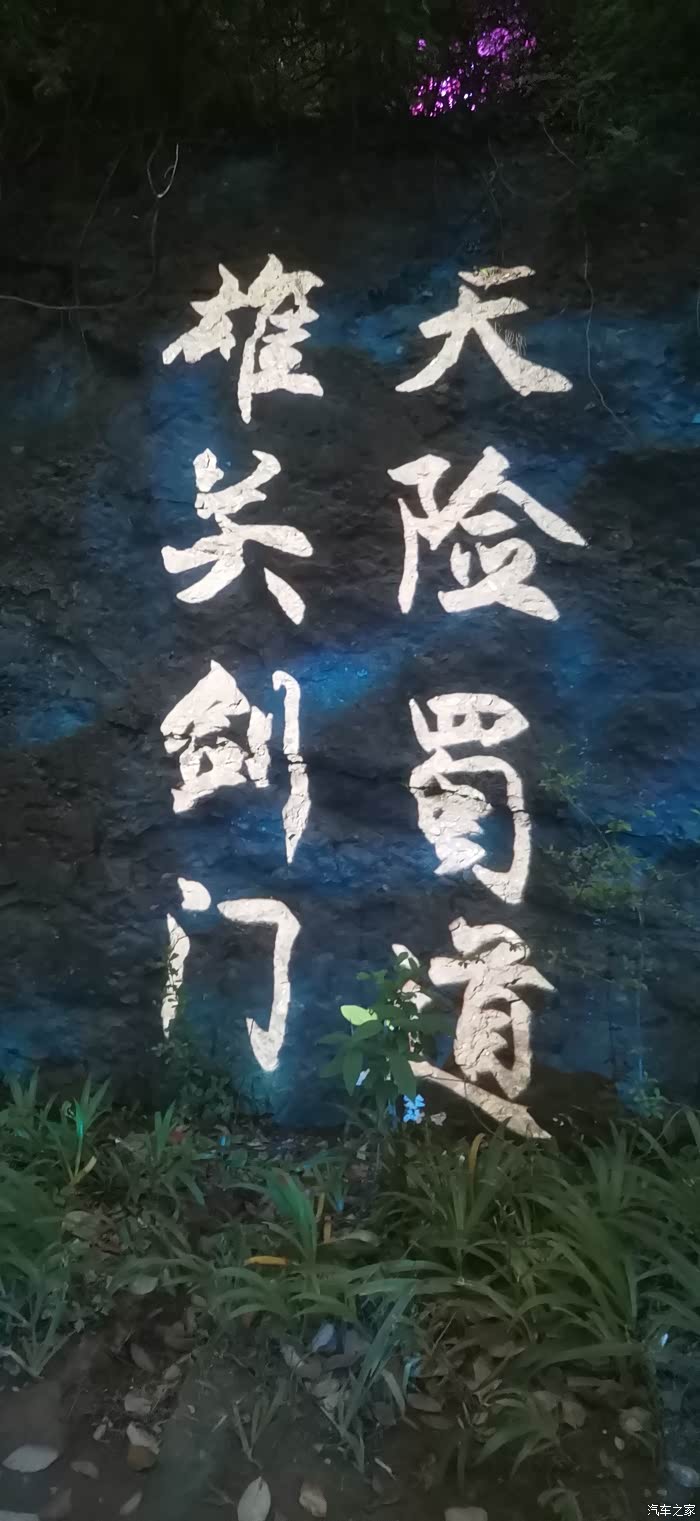 天险蜀道
雄关剑门
汽车之家